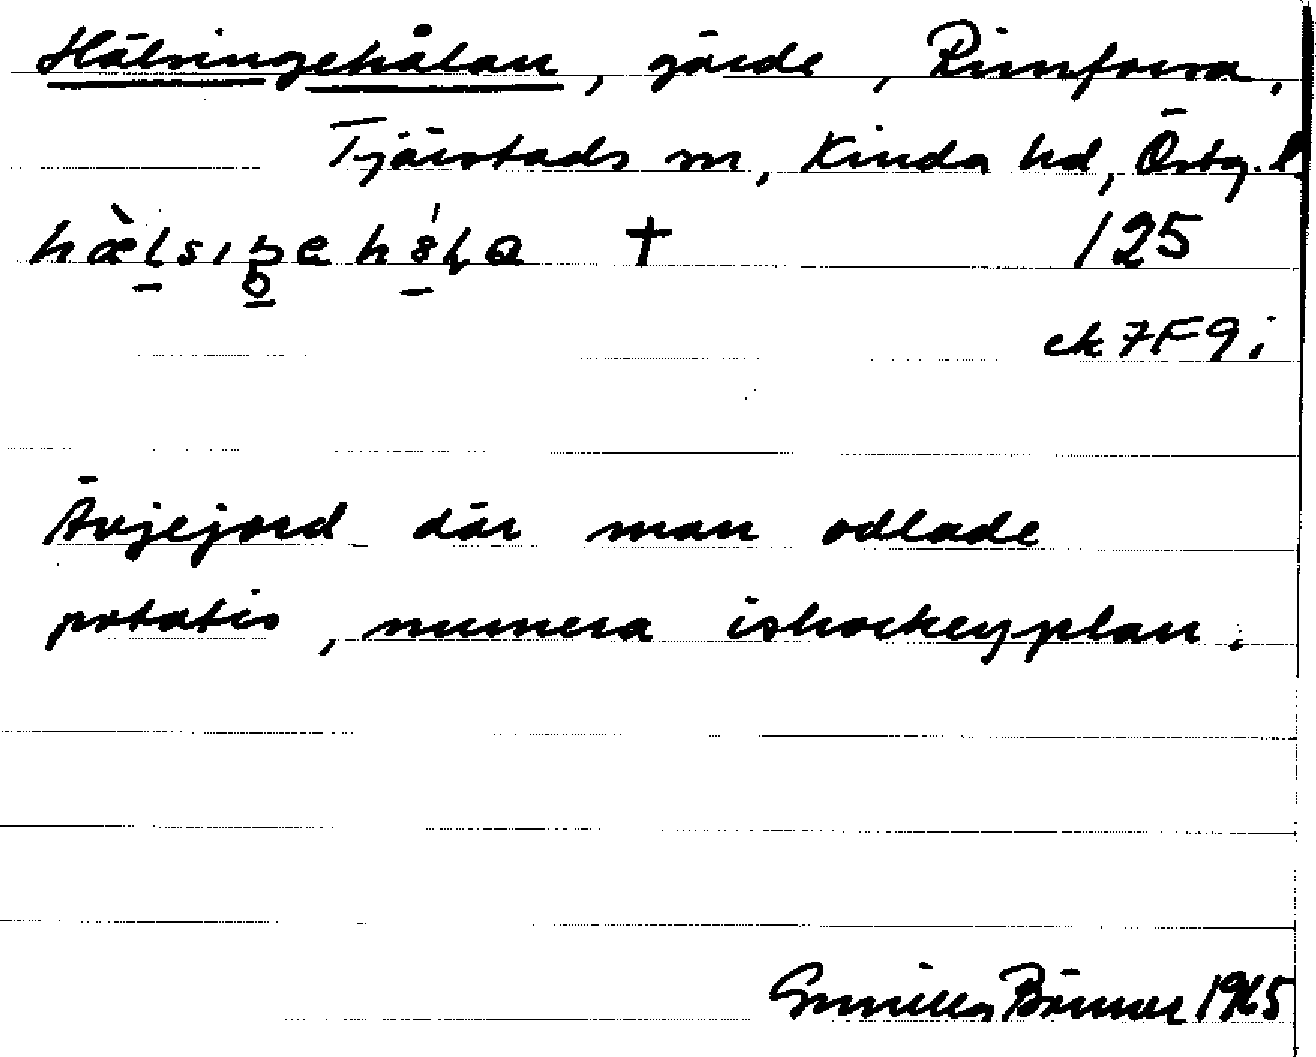 Hälsingehålan, gärde, Rimforsa,
Tjärstads sn, Kinda hd, Östg. l.
hæ̀lsıŋehålɑ † 125
ek 7F9i
Ävjejord där man odlade
potatis, numera ishockeyplan.
Gunilla 1965